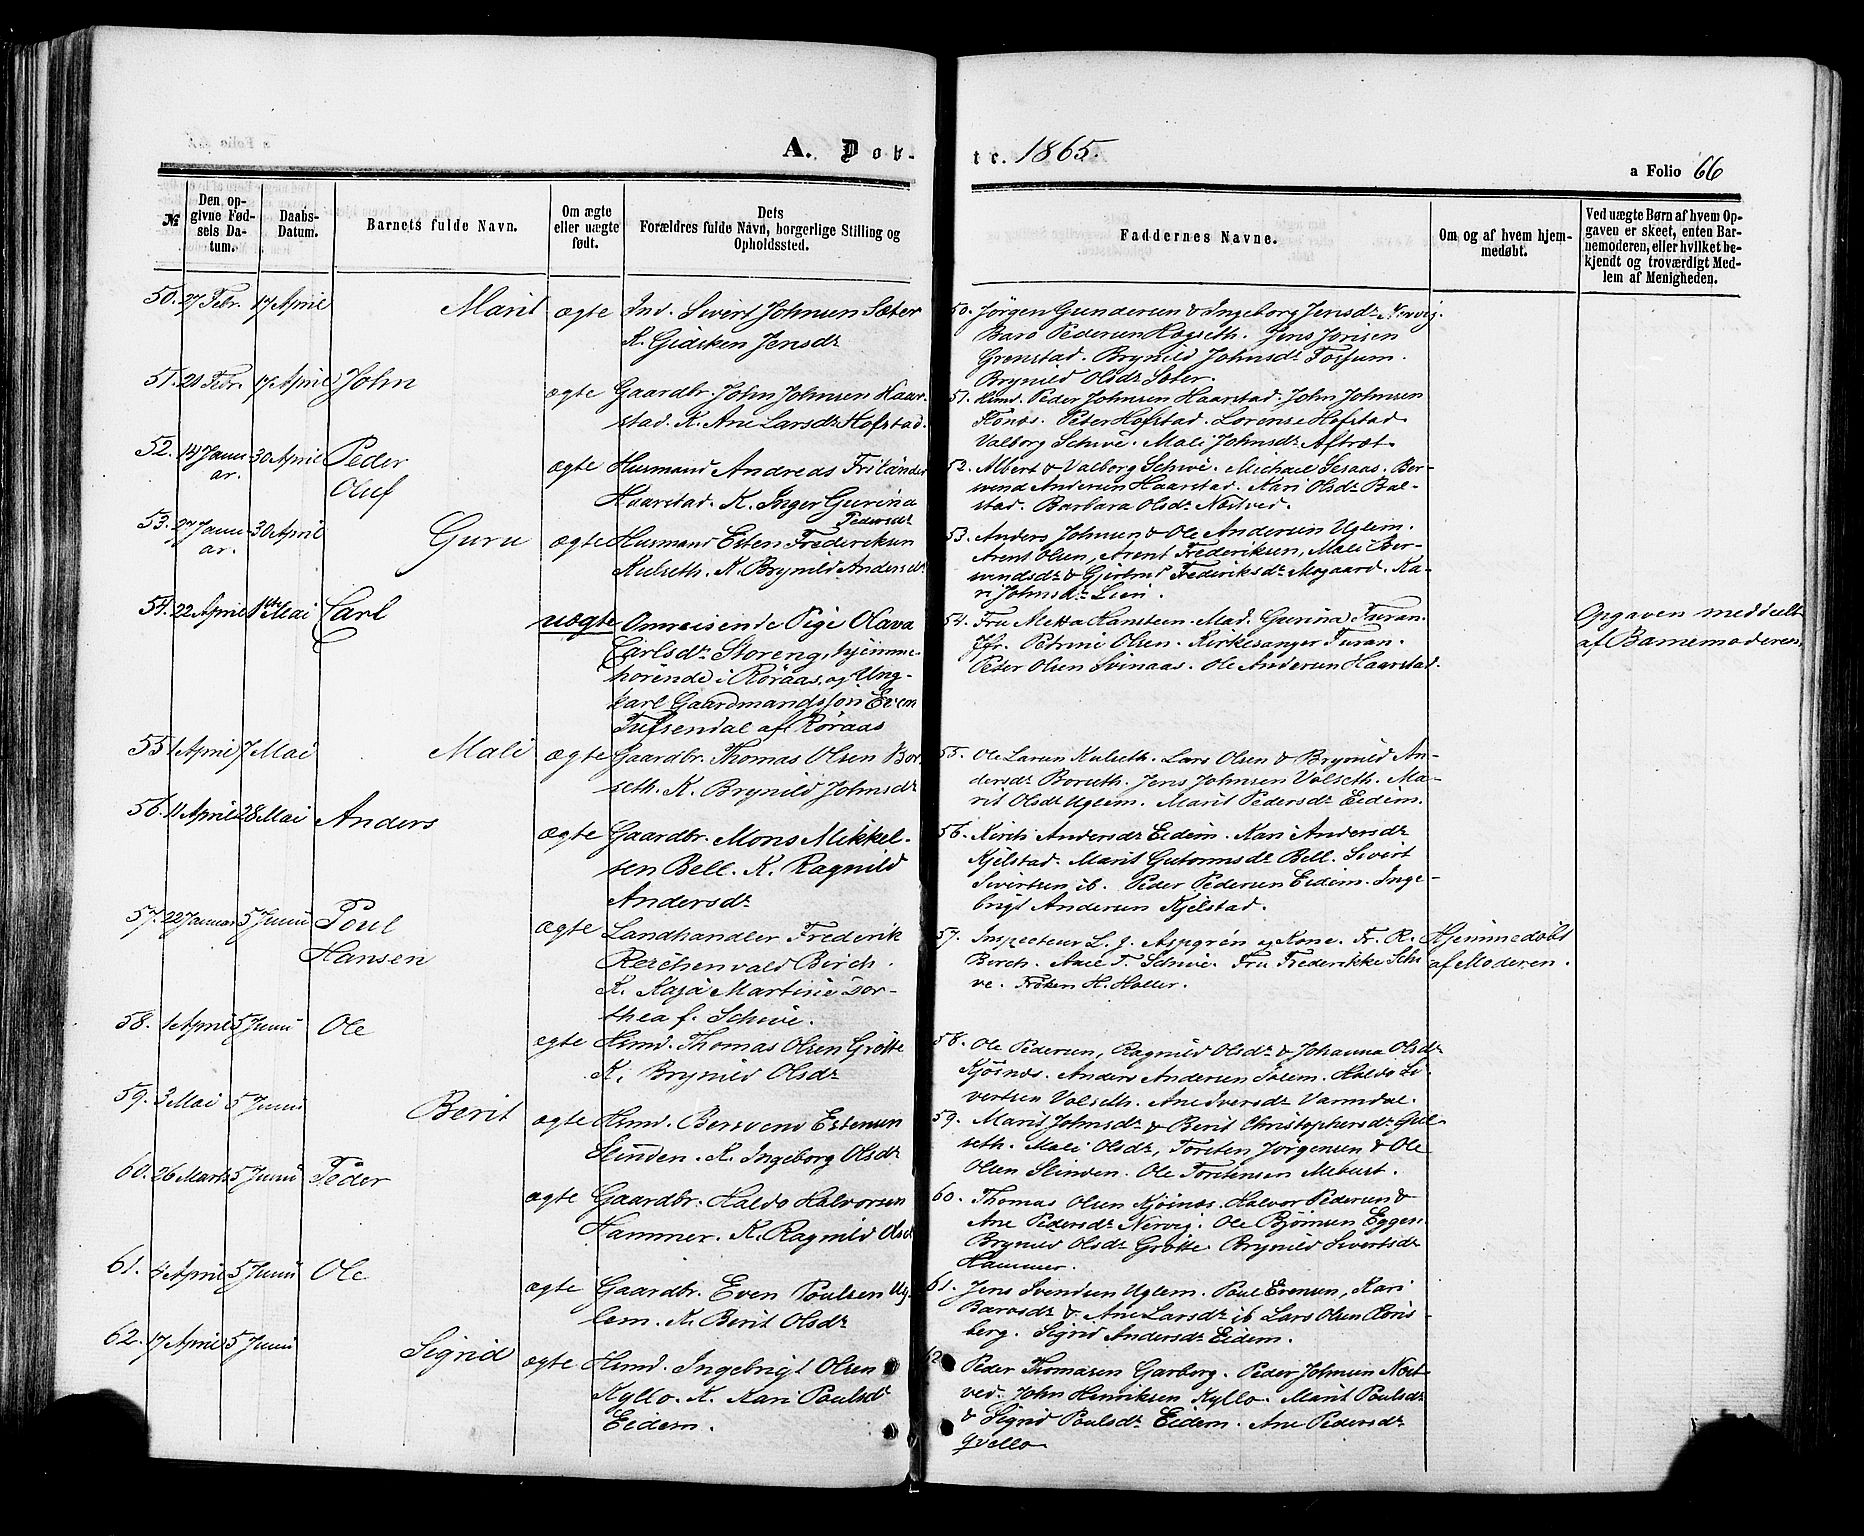 A. Døb-
te. 1865.
a Folio 66
№
Den op-
givne Fød-
sels Da-
tum.
Daabs-
Datum.
Barnets fulde Navn.
Om ægte
eller uægte
født.
Dets
Forældres fulde Navn, borgerlige Stilling og
Opholdssted.
Faddernes Navne.
Om og af hvem hjem-
medøbt.
Ved uægte Børn af hvem Op-
gaven er skeet, enten Bar-
nemoderen, eller hvilket be-
kjendt og troværdigt Med-
lem af Menigheden.
50. 27 Febr. 17 April Marit ægte Ind. Sivert Johnsen Sæter
K. Gidsken Jensdr
50. Jørgen Gundersen & Ingeborg Jensdr Nervig.
Baro Pedersen Hogseth. Jens Jonsen
Grønstad. Brynild Johnsdr Fossum.
Brynild Olsdr Sæter.
51. 21 Febr. 17 April John ægte Gaardbr. John Johnsen Haar-
stad. K. Ane Larsdr Hofstad.
51. Husmd. Peder Johnsen Haarstad. John Johnsen
Peter Hofstad. Lorense Hofstad
Valborg Schive. Mali Johnsdr Aftræt.
52. 14 Janu-
ar. 30 April Peder
Oluf ægte Husmand Andreas Frilænder
Haarstad. K. Inger Gurina
Pedersdr
52. Albert & Valborg Schive. Michael Sesaas. Ber-
svend Andersen Haarstad. Kari Olsdr Bal-
stad. Barbara Olsdr Nostved.
53. 27 Janu-
ar. 30 April Guru ægte Husmand Esten Frederiksen
Kulseth. K. Brynild Andersdr
53. Anders Johnsen & Ole Andersen Uglem.
Arent Olsen, Arent Frederiksen, Mali Ber-
svendsdr & Gjertrud Frederiksdr Mogaard. Ka-
ri Johnsdr Lien.
54. 22 April 1ste Mai Carl uægte Omreisende Pige Olava
Carlsdr Storeng, hjemme-
hørende i Røraas, og Ung-
karl Gaardmandssøn Even
Tufsendal af Røraas
54. Fru Metta Hansteen. Mad. Gurina Turan.
Jfr. Petrine Olsen. Kirkesanger Turan.
Peter Olsen Svinaas. Ole Andersen Haarstad.
Opgaven meddeelt
af Barnemoderen.
55. 1 April 7 Mai Mali ægte Gaardbr. Thomas Olsen Bor-
seth. K. Brynild Johnsdr
55. Ole Larsen Kulseth. Lars Olsen & Brynild An-
dersdr Borseth. Jens Johnsen Volseth. Ma-
rit Olsdr Uglem. Marit Pedersdr Eidem.
56. 11 April 28 Mai Anders ægte Gaardbr. Mons Mikkel-
sen Bell. K. Ragnild
Andersdr
56. Kirsti Andersdr Eidem. Kari Andersdr
Kjelstad. Marit Gutormsdr Bell. Sivert
Sivertsen ib. Peder Pedersen Eidem. Inge-
brigt Andersen Kjelstad.
57. 22 Januar 5 Junii Poul
Hansen ægte Landhandler Frederik
Reichenvald Birch.
K. Kaja Martine Dor-
thea f. Schive.
57. Inspecteur L. J. Aspgren og Kone. Fr. R.
Birch. Aage T. Schive. Fru Frederikke Schi-
ve. Frøken H. Holler.
Hjemmedøbt
af Moderen.
58. 1 April 5 Junii Ole ægte Hsmd. Thomas Olsen Grøtte
K. Brynild Olsdr
58. Ole Pedersen, Ragnild Olsdr & Johanna Olsdr
Kjøsnæs. Anders Andersen Solem. Haldo Si-
vertsen Volseth. Ane Iversdr Varmdal.
59. 3 Mai 5 Junii Berit ægte Hsmd. Bersvend Estensen
Slinden. K. Ingeborg Olsdr
59. Marit Johnsdr & Berit Christophersdr Gul-
seth. Mali Olsdr, Torsten Jørgensen & Ole
Olsen Slinden. Ole Torstensen Mebust.
60. 26 Marts 5 Junii Peder ægte Gaardbr. Haldo Halvorsen
Hammer. K. Ragnild Olsd
60. Thomas Olsen Kjøsnæs. Halvor Pedersen &
Ane Pedersdr Nervig. Ole Bjørnsen Eggen.
Brynild Olsdr Grøtte. Brynild Sivertsdr
Hammer.
61. 4 April 5 Junii Ole ægte Gaardbr. Even Poulsen Ug-
lem. K. Berit Olsdr
61. Jens Svendsen Uglem. Poul Evensen, Kari
Barosdr & Ane Larsdr ib Lars Olsen Renis-
berg. Sigrid Andersdr Eidem.
62. 17 April 5 Junii Sigrid ægte Hsmd. Ingebrigt Olsen
Kyllo. K. Kari Poulsdr
Eidem.
62. Peder Thomasen Garberg. Peder Johnsen Nost-
ved. John Henriksen Kyllo. Marit Poulsdr
& Sigrid Poulsdr Eidem. Ane Pedersdr
Qvello